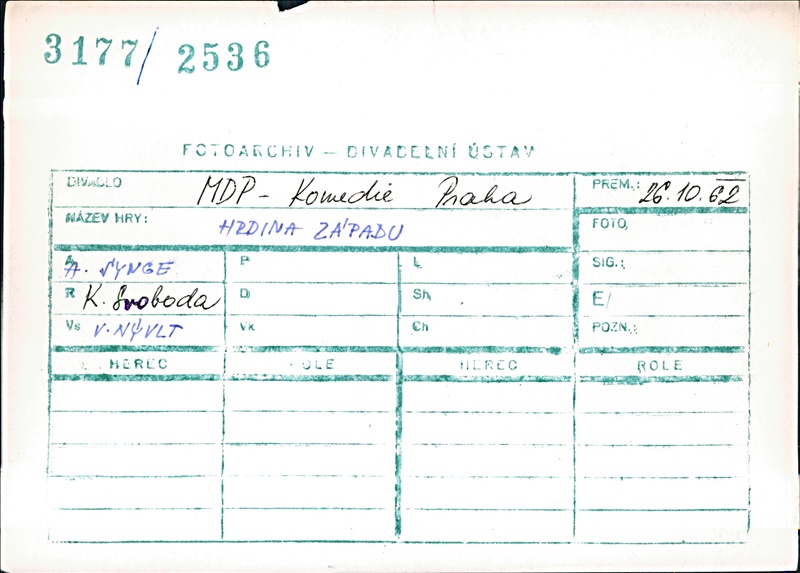 3177/ 2536
FOTOARCHIV — DIVADELNÍ ÚSTAV
DIVADLO MDP - Komedie Praha PREM.: 26.10.62
NÁZEV HRY: HRDINA ZÁPADU FOTO,
A. SYNGE P L SIG.:
R K. Svoboda D Sh E/
Vs V. NÝVLT Vk Ch POZN.:
HEREC ROLE HEREC ROLE